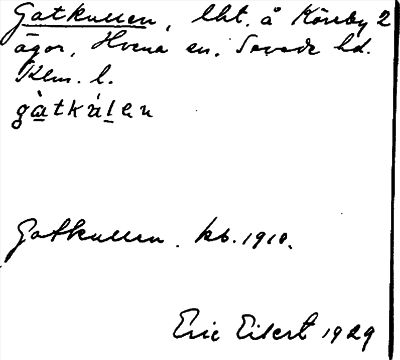 Gatkullen, lht. å Könby 2
ägor, Hvena sn. Sevede hd.
Klm. l.
gàtkálen
Gatkullen. kb. 1910.
Eric Eilert 1929